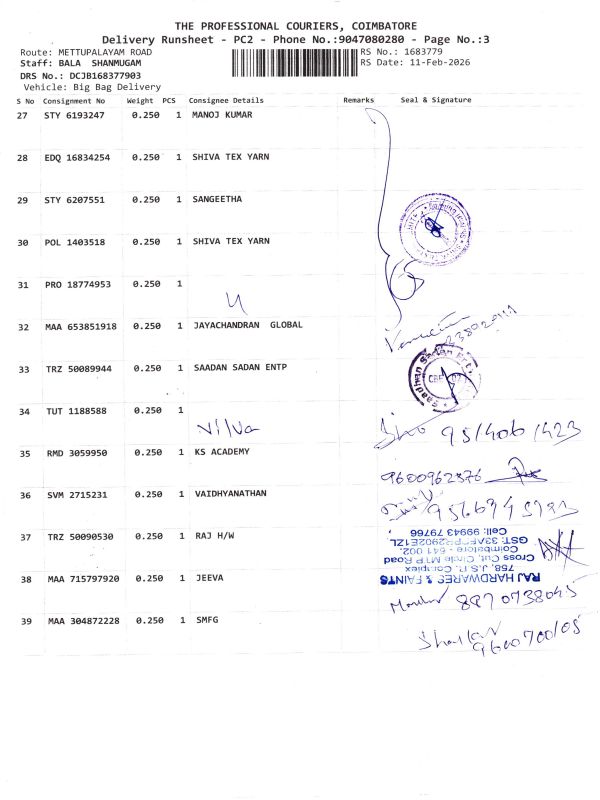 THE PROFESSIONAL COURIERS, COIMBATORE
Delivery Runsheet - PC2 - Phone No.:9047080280 - Page No.:3
Route: METTUPALAYAM ROAD
RS No.: 1683779
Staff: BALA SHANMUGAM
RS Date: 11-Feb-2026
DRS No.: DCJB168377903
Vehicle: Big Bag Delivery
S No Consignment No Weight PCS Consignee Details Remarks Seal & Signature
27 STY 6193247 0.250 1 MANOJ KUMAR
28 EDQ 16834254 0.250 1 SHIVA TEX YARN
29 STY 6207551 0.250 1 SANGEETHA
30 POL 1403518 0.250 1 SHIVA TEX YARN
31 PRO 18774953 0.250 1
32 MAA 653851918 0.250 1 JAYACHANDRAN GLOBAL
33 TRZ 50089944 0.250 1 SAADAN SADAN ENTP
34 TUT 1188588 0.250 1
Vilva
35 RMD 3059950 0.250 1 KS ACADEMY
9600962876
36 SVM 2715231 0.250 1 VAIDHYANATHAN
37 TRZ 50090530 0.250 1 RAJ H/W
RAJ HARDWARES & PAINTS
758, J.S.P. Complex
Cross Cut, Circle MTP Road
Coimbatore - 641 002.
Cell: 99943 79766
38 MAA 715797920 0.250 1 JEEVA
8870738045
39 MAA 304872228 0.250 1 SMFG